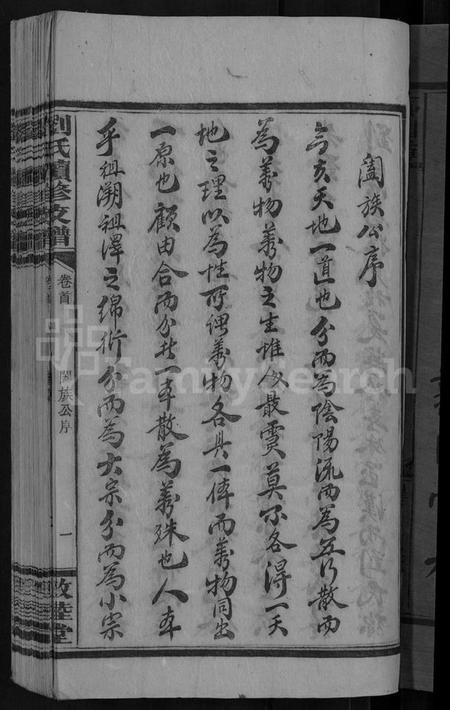 闔族公序
天地一道也分而為陰陽流而為五行散而
為萬物萬物之生惟人最靈莫不各得一天
地之理以為性所謂萬物各具一體而萬物同出
一原也顧由合而分者一本散為萬殊也人本
乎祖溯祖澤之綿衍分而為大宗分而為小宗
劉氏續修支譜
卷首
闔族公序
一
敦睦堂
FamilySearch